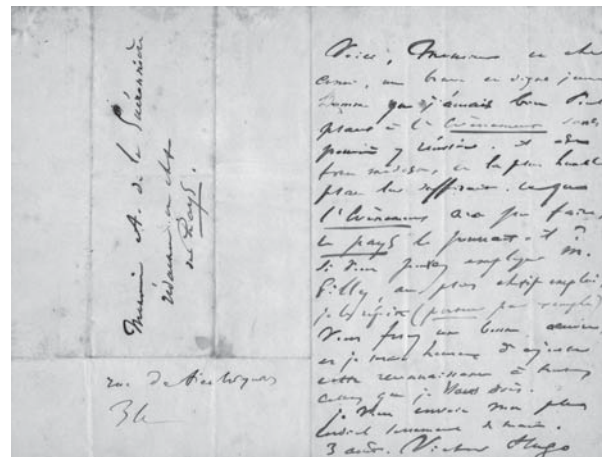 Monsieur A. de la Guéronnière
rédacteur en chef
du Pays.
rue
34
Voici, Monsieur et cher
ami, un brave et digne jeune
homme que j'aurais bien voulu
placer à l'Evénement sans
pouvoir y réussir. il est
fort modeste, et la plus humble
place lui suffirait. ce que
l'Evénement n'a pu faire,
le pays le pourrait-il ?
si vous pouvez employer M.
Gilly, au plus chétif emploi,
je le répète (par exemple)
Vous ferez une bonne action,
et je serai heureux d'ajouter
cette reconnaissance à toutes
celles que je vous dois.
je vous envoie mon plus
cordial serrement de main.
3 août. Victor Hugo